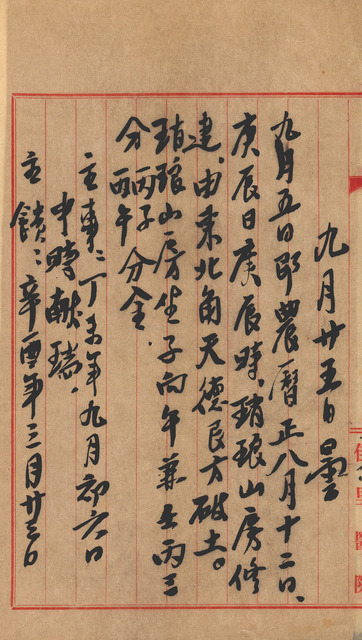 九月廿五日曇
九月五日即農曆正八月十二日、
庚辰日庚辰時。瑣琅山房修
建、由東北角天德艮方破土。
瑣琅山房坐子向午兼壬丙三
分丙子
丙午
分金.
主事：丁未年九月初六日
申時献瑞.
主饋：辛酉年三月廿三日
佳里醫院